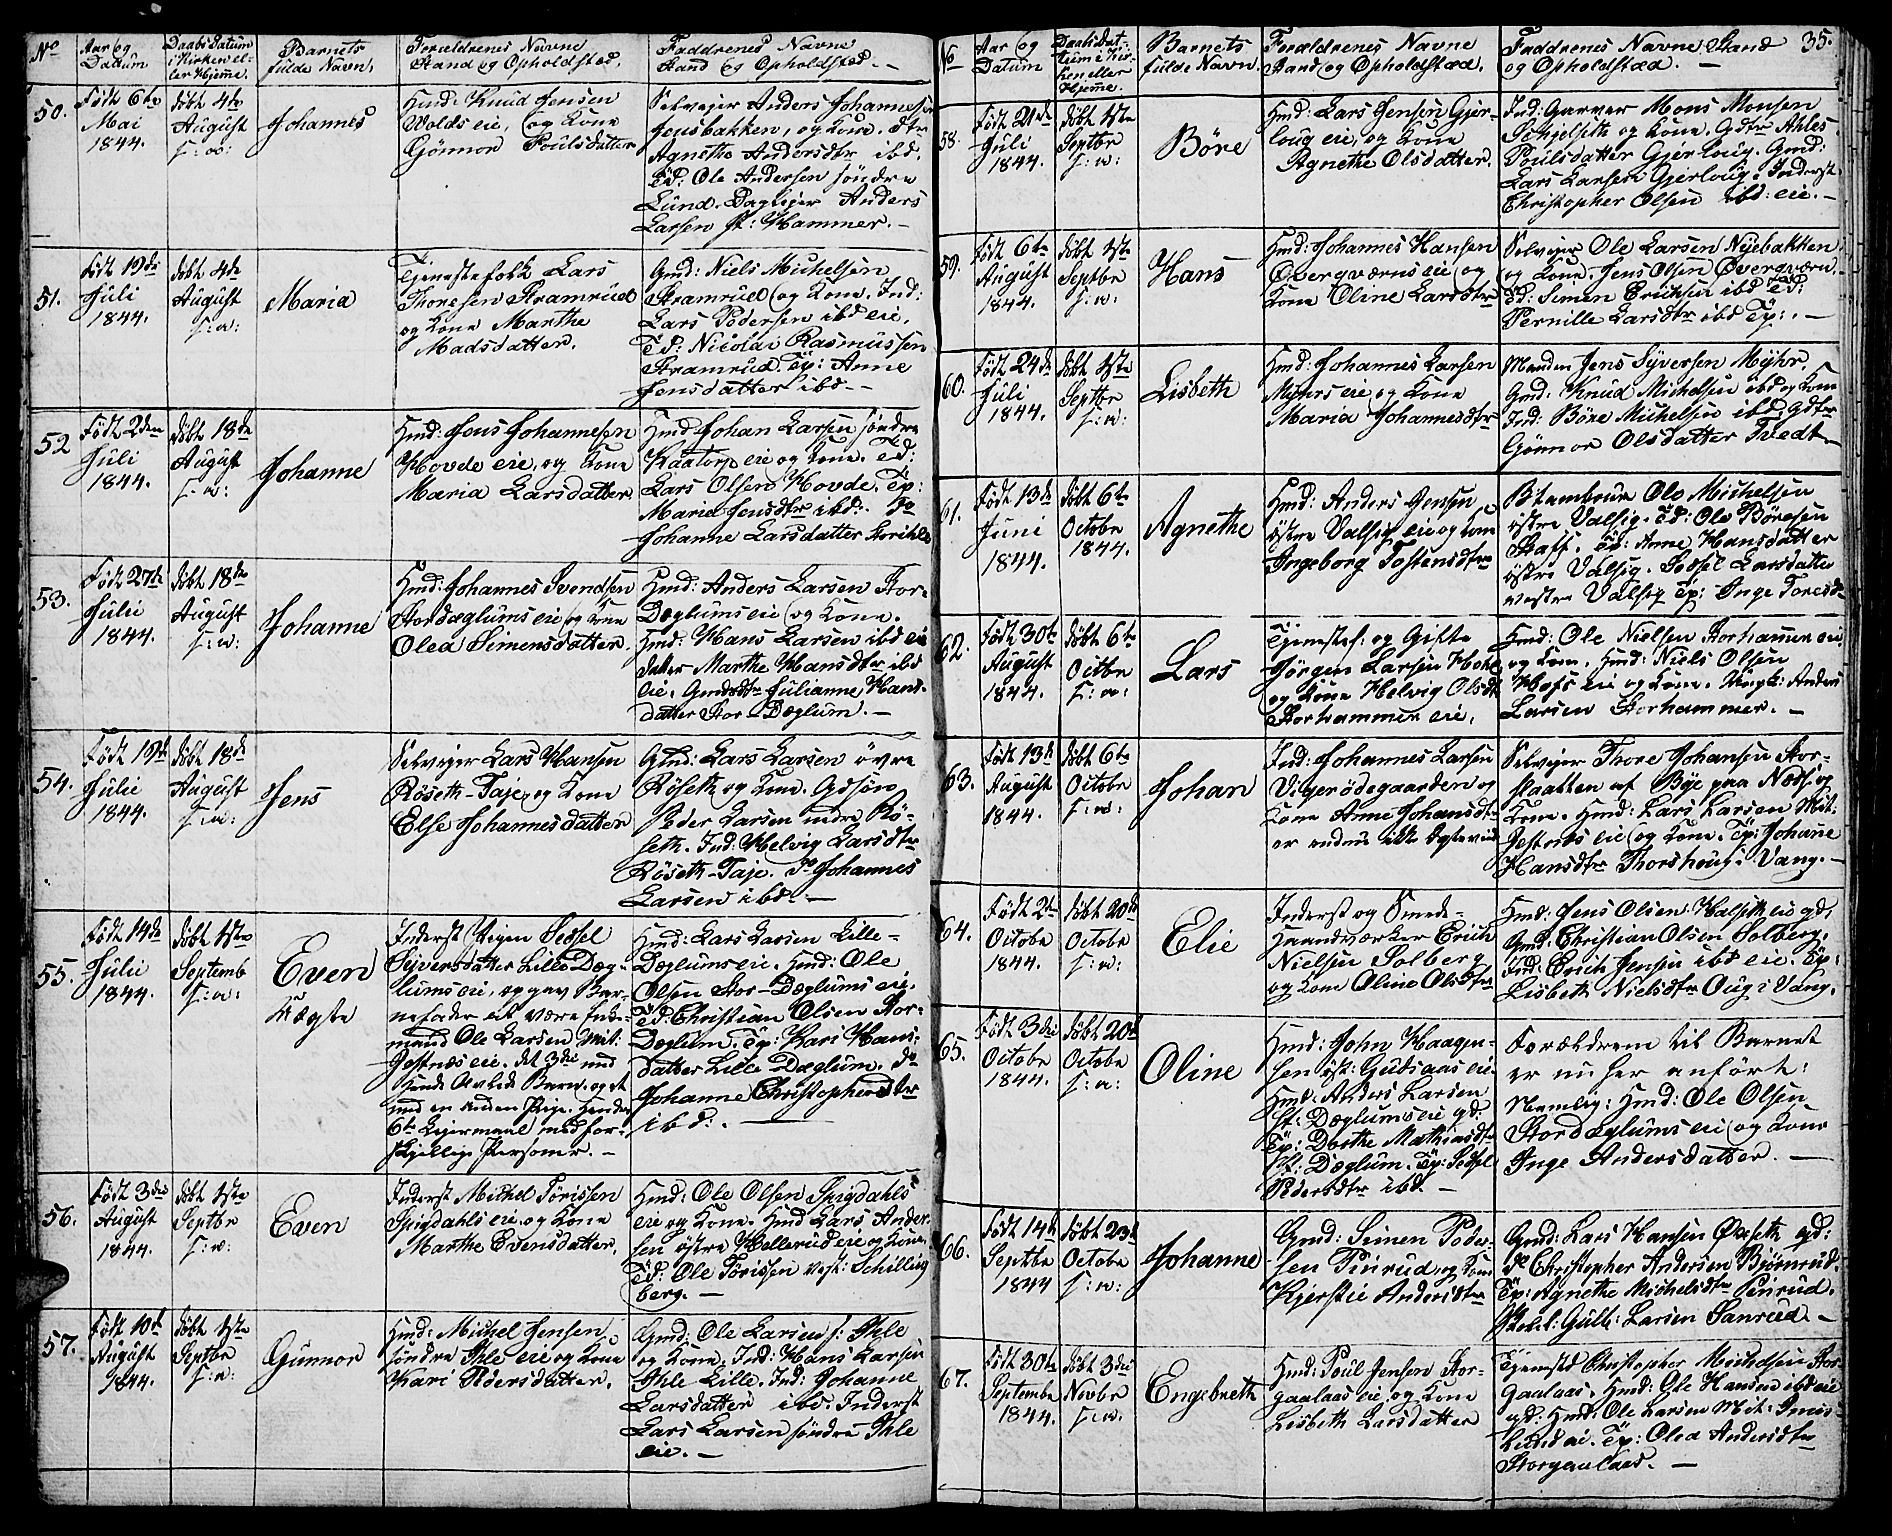 No
Aar og
Datum
Daabsdatum
i Kirken el-
ler Hjeme.
Barnets
fulde Navn.
Forældrenes Navne
Stand og Opholdsted.
Faddrenes Navne
Stand og Opholdsted. —
50.
Født 6te
Mai
1844.
døbt 4de
August
s: a:
Johannes
Hmd: Knud Jensen
Volds eie, og Kone
Gönnor Poulsdatter
Selveier Anders Johannesen
Jensbakken, og Kone.
Agnethe Andersdtr ibd.
Td: Ole Andersen söndre
Lund. Anders
Larsen St: Hammer. —
51.
Født 19de
Juli
1844.
døbt 4de
August
s: a:
Maria
Tjenestefolk Lars
Thoresen Stramrud
og Kone Marthe
Madsdatter.
Gmd: Niels Michelsen
Stramrud og Kone. Ind:
Lars Pedersen ibd eie.
Td: Nicolai Rasmussen
Stramrud. Tp: Anne
Jensdatter ibd. —
52
Født 2den
Juli
1844.
døbt 18de
August
s: a:
Johanne
Hmd: Jens Johannesen
Hovde eie, og Kone
Maria Larsdatter
Hmd Johan Larsen söndre
Kaatorp eie og Kone. Td:
Lars Olsen Hovde. Tp:
Maria Jensdtr ibd:
Johanne Larsdatter
53.
Født 27de
Julii
1844.
døbt 18de
August
s: a:
Johanne
Hmd: Johannes Svendsen
Stordæglums eie og Kone
Olea Simensdatter.
Hmd: Anders Larsen Stor-
Dæglums eie og Kone.
Hmd: Hans Larsen ibd eie
Marthe Hansdtr ibd
eie. Julianne Hans-
datter Stor-Dæglum. —
54.
Født 19de
Julii
1844.
døbt 18de
August
s: a:
Jens
Selveier Lars Hansen
Röseth-Taje, og Kone
Else Johannesdatter
Gmd: Lars Larsen övre
Röseth og Kone. Gdsön
Peder Larsen nedre Rö-
seth. Ind: Helvig Larsdtr
Röseth-Taje. Do Johannes
Larsen ibd. —
55.
Født 14de
Julii
1844.
døbt 1ste
Septemb
s: a:
Even
Uægte
Inderst Pigen Sedsel
Siversdatter Lille Dæg-
lums eie, opgav Bar-
nefader at være Enke-
mand Ole Larsen Mit:
Jestnæs eie. det 3die med
hende Avlede Barn, og et
med en anden Pige. Hendes
6te Leiermaal med for-
skjellige Personer. —
Hmd: Lars Larsen Lille-
Dæglums eie. Hmd: Ole
Olsen Stor-Dæglums eie.
Td: Christian Olsen Stor-
Dæglum. Tp: Kari Hans-
datter Lille Dæglum. Do
Johanne Christophersdtr
ibd: —
56.
Født 3die
August
1844.
døbt 1ste
Septbr
s: a:
Even
Inderst Michel Törissen
Spigdahls eie og Kone
Marthe Evensdatter.
Hmd: Ole Olsen Spigdahls
eie og Kone. Hmd Lars Ander-
sen östre Hellerud eie og Kone.
Td: Ole Törissen vest: Schilling
berg. —
57.
Født 10de
August
1844.
døbt 1ste
Septbr
s: a:
Gunnor
Hmd: Michel Jensen
söndre Ihle eie og Kone
Kari Pedersdatter.
Gmd: Ole Larsen s: Ihle
og Kone. Ind: Hans Larsen
Ihle Lille. Ind: Johanne
Larsdatter ibd. Inderst
Lars Larsen söndre Ihle
eie. —
No
Aar og
Datum
Daabsdat-
um i Kir-
ken eller
Hjeme.
Barnets
fulde Navn.
Forældrenes Navne
Stand og Opholdsted.
Faddrenes Navne Stand
og Opholdsted. —
35.
58.
Født 21de
Juli
1844.
døbt 1ste
Septbr
s: a:
Böre
Hmd: Lars Jensen Gjer-
loug eie, og Kone
Agnethe Olsdatter.
Ind: Garver Mons Monsen
Skjelseth og Kone. Gdtr Ahles
Poulsdatter Gjerloug. Gmd:
Lars Larsen Gjerloug. Inderst
Christopher Olsen ibd: eie. —
59.
Født 6te
August
1844.
døbt 1ste
Septbr
s: a:
Hans
Hmd: Johannes Hansen
Övergværns eie og
Kone Oline Larsdtr
Selveier Ole Larsen Nyebakken
og Kone. Jens Olsen Övergværn.
Td: Simen Erichsen ibd Td:
Pernille Larsdtr ibd Tp:. —
60.
Født 24de
Juli
1844.
døbt 1ste
Septbr
s: a:
Lisbeth
Hmd: Johannes Larsen
Myhrs eie og Kone
Maria Johannesdtr
Manden Jens Syversen Myhr.
Gmd: Knud Michelsen ibd og Kone
Ind: Böre Michelsen ibd. Gdtr
Gönnor Olsdatter Tvedt —
61.
Født 13de
Juni
1844.
døbt 6te
October
1844.
Agnethe
Hmd: Anders Jensen
östre Valsig eie og Kone
Ingeborg Tostensdtr
Ole Michelsen
östre Valsig. Td: Ole Börresen
Skaff. Tp: Anne Hansdatter
östre Valsig. Sedsel Larsdatter
vestre Valsig Tp: Inge Toresd.
62.
Født 30te
August
1844.
døbt 6te
Octbr
s: a:
Lars
Tjenestef: og Gifte
Jörgen Larsen Hoel
og Kone Helvig Olsdt
Storhammer eie.
Hmd: Ole Nielsen Storhamer eie
og Kone. Hmd: Niels Olsen
Hofs eie og Kone. Ungk: Anders
Larsen Storhammer. —
63.
Født 13de
August
1844.
døbt 6te
October
s: a:
Johan
Ind: Johannes Larsen
Viger ödegaarden og
Kone Anne Johansdt
er endnu ikke Ægteviede
Selveier Thore Johansen Stor-
staatten af Bye paa Næs og
Kone. Hmd: Lars Larsen Mit:
Jestnæs eie og Kone. Tp: Johane
Hansdtr Thorshoug i Vang. —
64.
Født 2de
October
1844.
døbt 20de
October
s: a:
Elie
Inderst og Smede-
Haandværker Erich
Nielsen Solberg
og Kone Oline Olsdtr
Hmd: Jens Olsen Halseth eie gd.
Gmd: Christian Olsen Solberg.
Ind: Erich Jensen ibd eie. Tp:
Lisbeth Nielsdtr Oug i Vang.
65.
Født 3die
October
1844.
døbt 20de
October
s: a:
Oline
Hmd: John Haagen-
sen öst: Gudsaas eie
Hmd: Anders Larsen
St: Dæglums eie gd:
Tp: Dorthe Mathiasdtr
St: Dæglum. Tp: Sedsel
Pedersdtr ibd. —
Forældrene til Barnet
er nu her anförte:
Nemlig: Hmd: Ole Olsen
Stordæglums eie og Kone
Inge Andersdatter. —
66.
Født 14de
Septbr
1844
døbt 23de
October
s: a:
Johanne
Gmd: Simen Peder-
sen Pinrud, og Kone
Kjerstie Andersdtr
Gmd: Lars Hansen Öxseth gd:
Do Christopher Andersen Björnrud.
Tp: Agnethe Michelsdtr Pinrud.
Gulb: Larsen Sanrud —
67.
Født 30te
Septembr
1844.
døbt 3die
Novbr
s: a:
Engebreth
Hmd: Poul Jensen Stor-
gaalaas eie og Kone
Lisbeth Larsdatter
Tjenestd Christopher Michelsen Stor-
gaalaas. Hmd: Ole Hansen ibd eie
gd: Hmd: Ole Larsen Mit: Imis-
lund eie. Tp: Olea Andersdtr
Storgaalaas. —